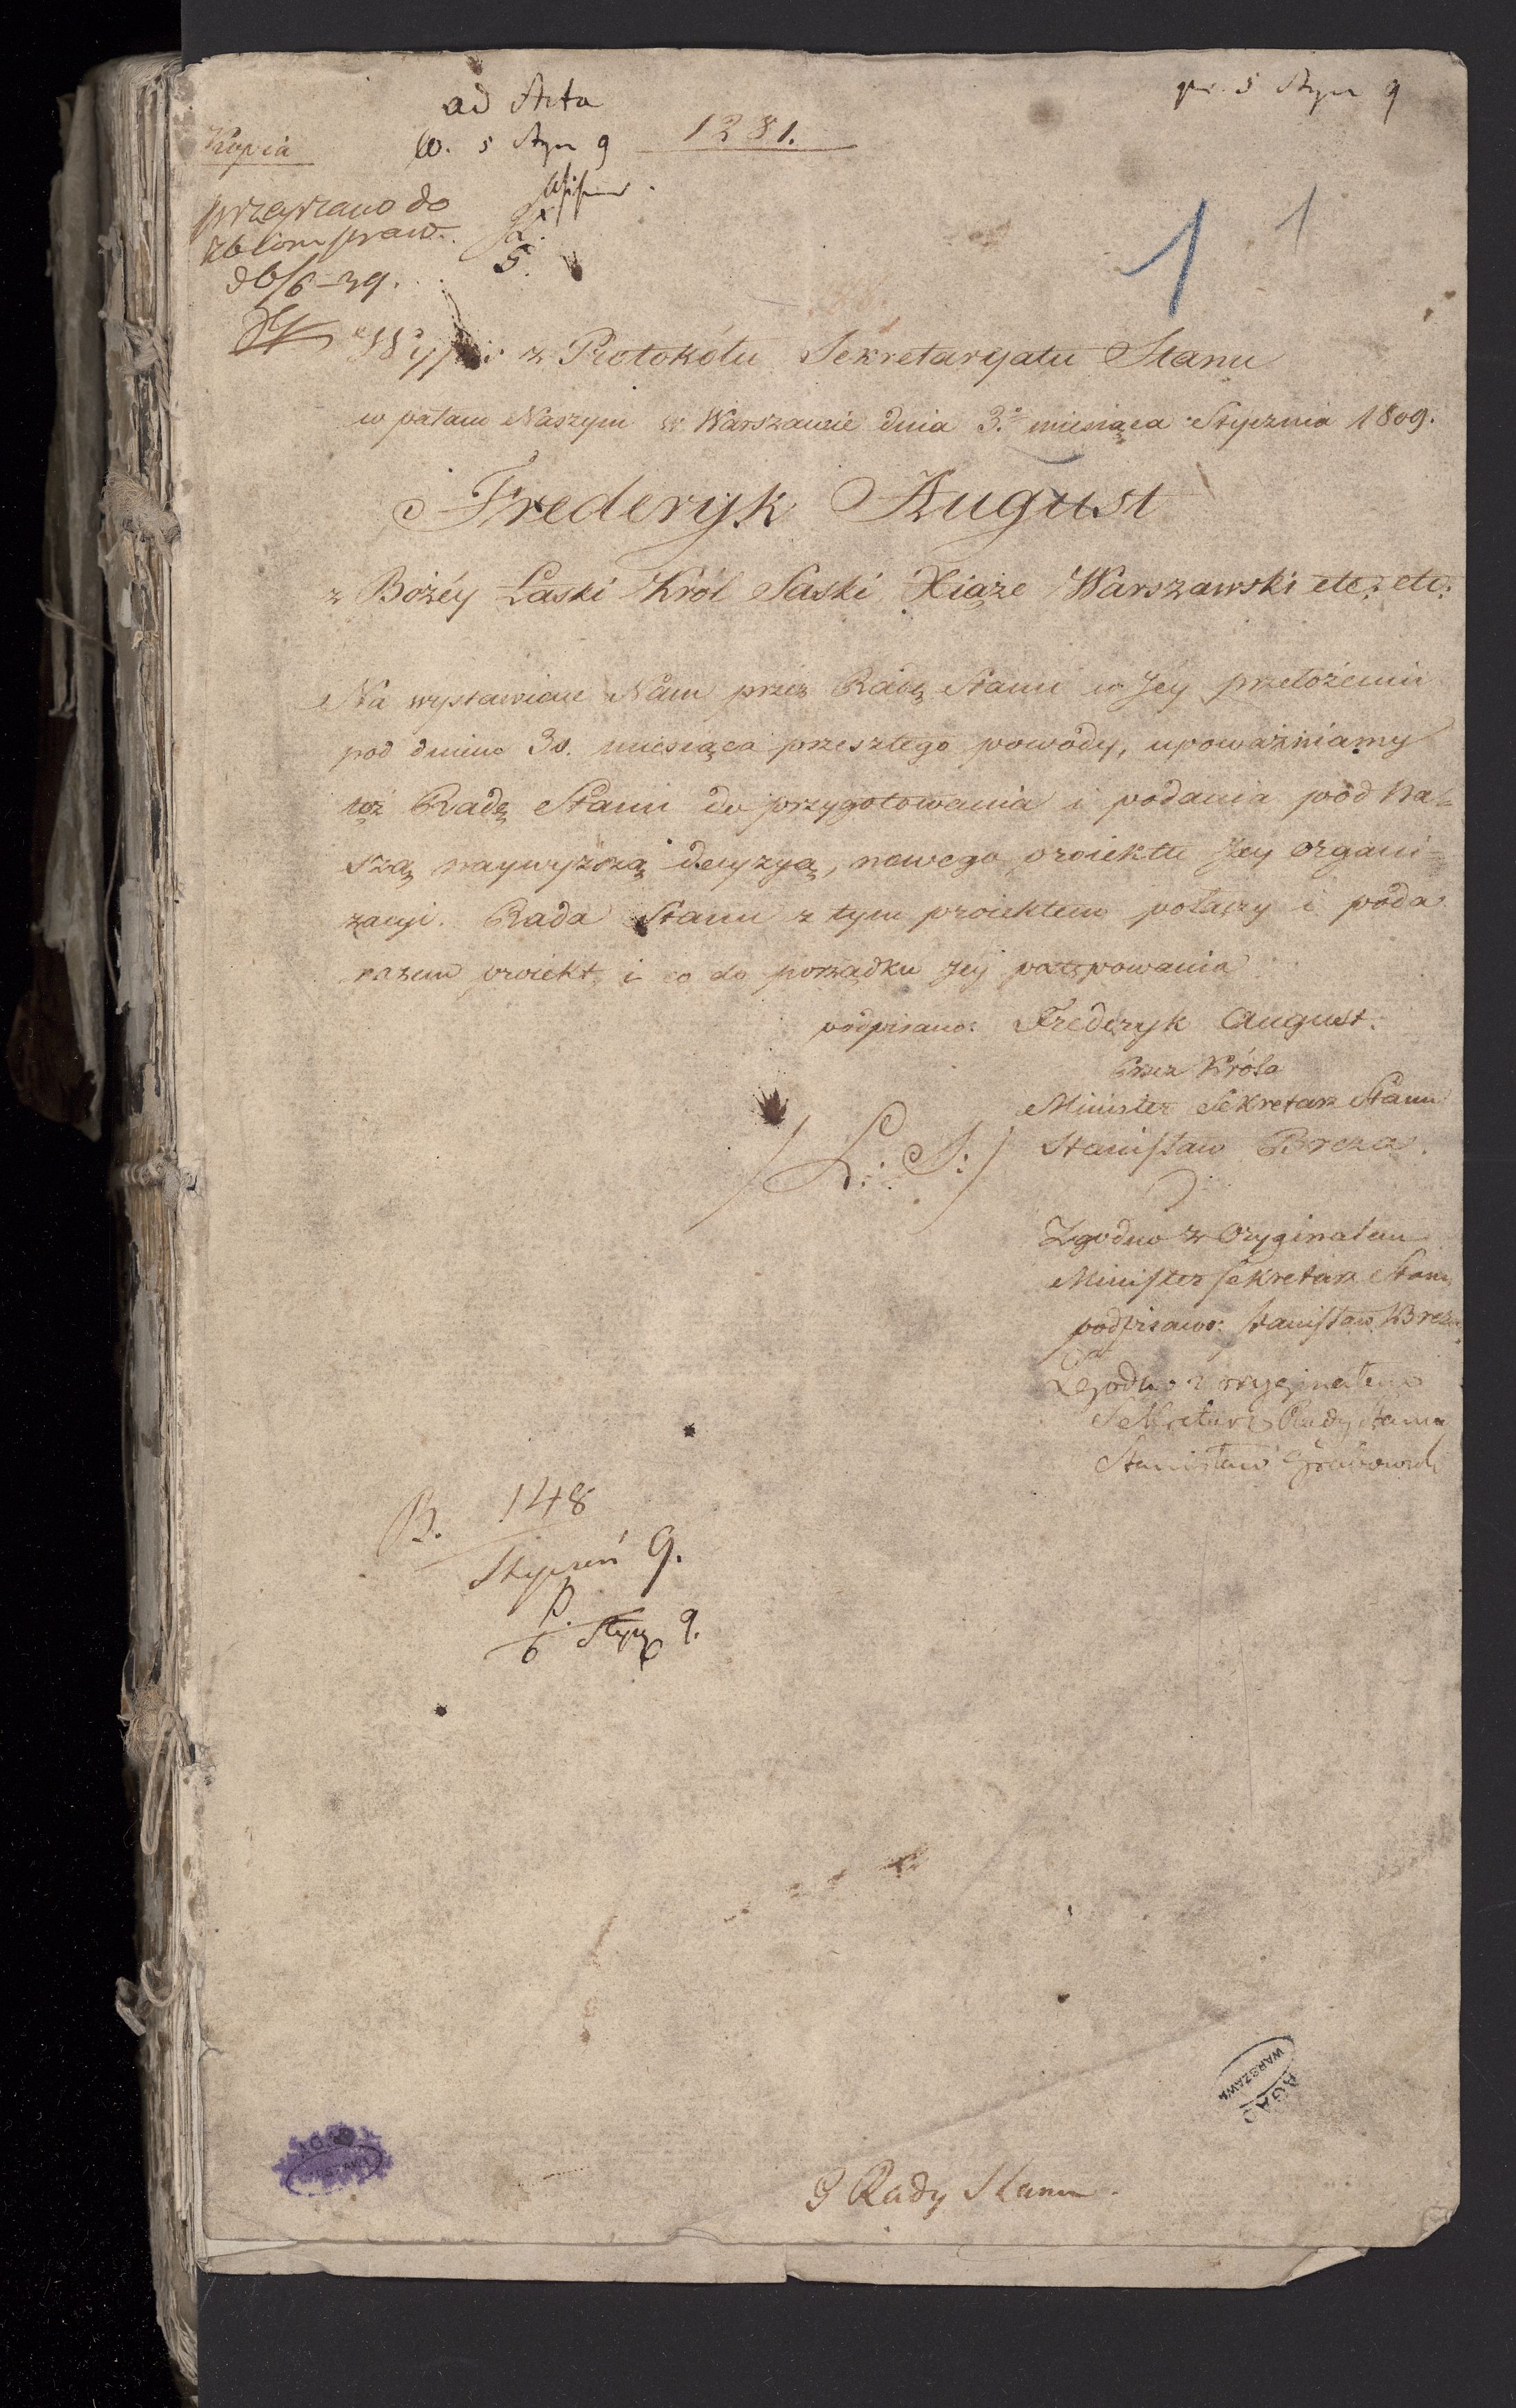 ad Acta
pr. 5 Stycz 9
Kopia
W. 5 Stycz 9
1281.
przejrzano do
zbioru praw.
d 6/6-39.
5.
1
1
Wypis z Protokółu Sekretaryatu Stanu
w pałacu Naszym w Warszawie dnia 3.º miesiąca Stycznia 1809.
Frederyk August
z Bożéy Łaski Król Saski, Xiąże Warszawski etc: etc:
Na wystawione Nam przez Radę Stanu w Jey przełożeniu
pod dniem 30. miesiąca przeszłego powody, upoważniamy
też Radę Stanu do przygotowania i podania pod Na-
szą naywyższą decyzyą, nowego proiektu Jey organi-
zacyi. Rada Stanu z tym proiektem połączy i poda
razem proiekt, i co do porządku Jey postępowania
podpisano: Frederyk August.
Przez Króla
Minister Sekretarz Stanu
/L: S:/ Stanisław Breza.
Zgodno z Oryginałem
Minister Sekretarz Stanu
podpisano: Stanisław Breza
Zgodno z oryginałem
Sekretarz Rady Stanu
Stanisław Grabowski
B. 148
Styczeń 9.
p.
6 Stycz 9.
AGAD
WARSZAWA
Rady Stanu.